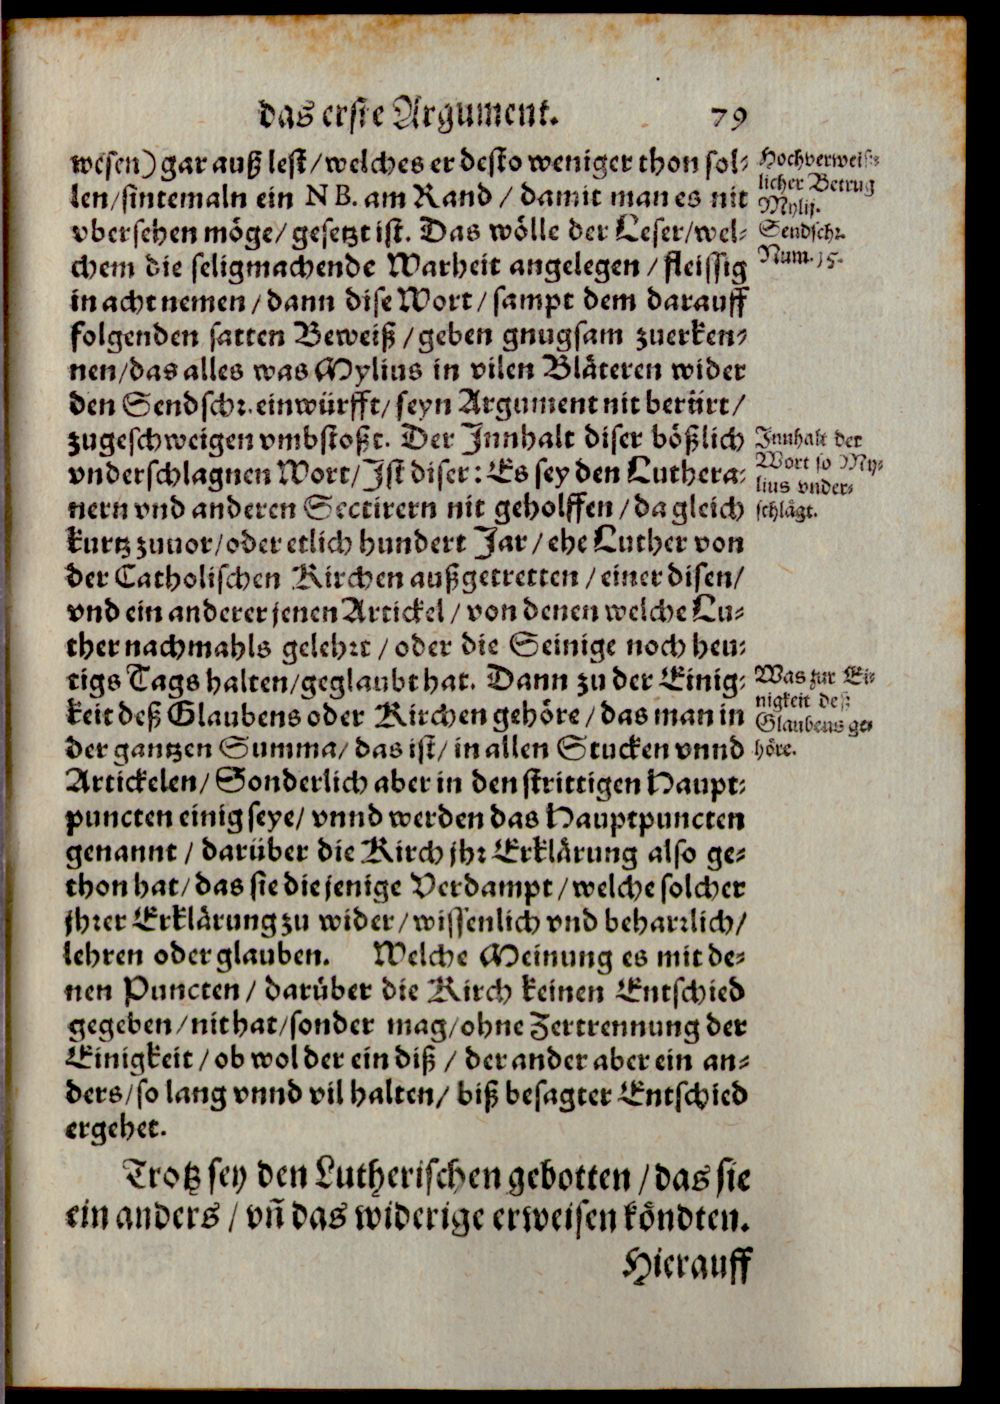 das erste Argument. 79
wesen) gar außlest / welches er desto weniger thon sol-
len / sintemaln ein N B. am Rand / damit man es nit
vbersehen möge / gesetzt ist. Das wölle der Leser / wel-
chem die seligmachende Warheit angelegen / fleissig
in acht nemen / dann dise Wort / sampt dem darauff
folgenden satten Beweiß / geben gnugsam zuerken-
nen / das alles was Mylius in vilen Bläteren wider
den Sendschr. einwürfft / seyn Argument nit berürt /
zugeschweigen vmbstoßt. Der Jnnhalt diser bößlich
vnderschlagnen Wort / Jst diser: Es sey den Luthera-
nern vnd anderen Sectirern nit geholffen / da gleich
kurtz zuuor / oder etlich hundert Jar / ehe Luther von
der Catholischen Kirchen außgetretten / einer disen /
vnd ein anderer jenen Artickel / von denen welche Lu-
ther nachmahls gelehrt / oder die Seinige noch heu-
tigs Tags halten / geglaubt hat. Dann zu der Einig-
keit deß Glaubens oder Kirchen gehöre / das man in
der gantzen Summa / das ist / in allen Stucken vnnd
Artickelen / Sonderlich aber in den strittigen Haupt-
puncten einig seye / vnnd werden das Hauptpuncten
genannt / darüber die Kirch jhr Erklärung also ge-
thon hat / das sie die jenige Verdampt / welche solcher
jhrer Erklärung zu wider / wissenlich vnd beharrlich /
lehren oder glauben. Welche Meinung es mit de-
nen Puncten / darüber die Kirch keinen Entschied
gegeben / nit hat / sonder mag / ohne Zertrennung der
Einigkeit / ob wol der ein diß / der ander aber ein an-
ders / so lang vnnd vil halten / biß besagter Entschied
ergehet.
Trotz sey den Lutherischen gebotten / das sie
ein anders / vñ das widerige erweisen köndten.
Hierauff
Hochverweiß-
licher Betrug
Mylij.
Sendschr.
Num. 15.
Jnnhalt der
Wort so My-
lius vnder-
schlägt.
Was zur Ei-
nigkeit deß
Glaubens ge-
höre.